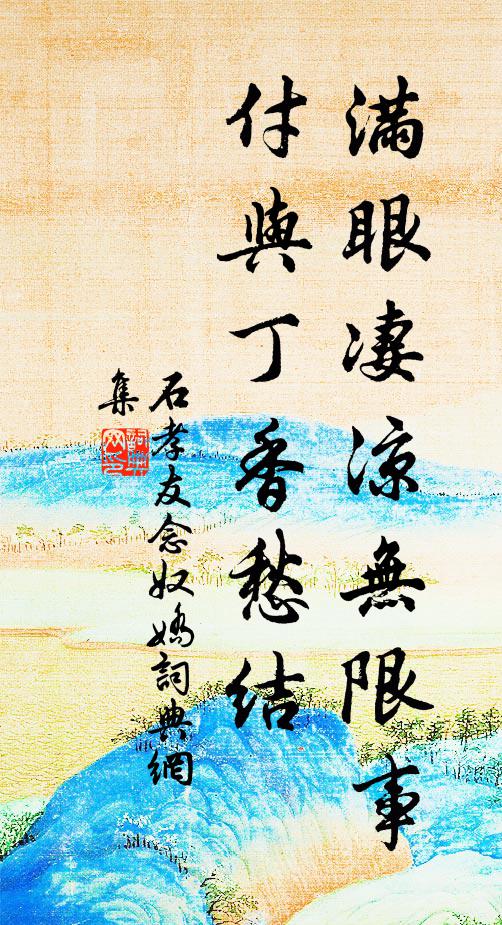 滿眼凄涼無限事
付與丁香愁結
石孝友念奴嬌詞典網
集